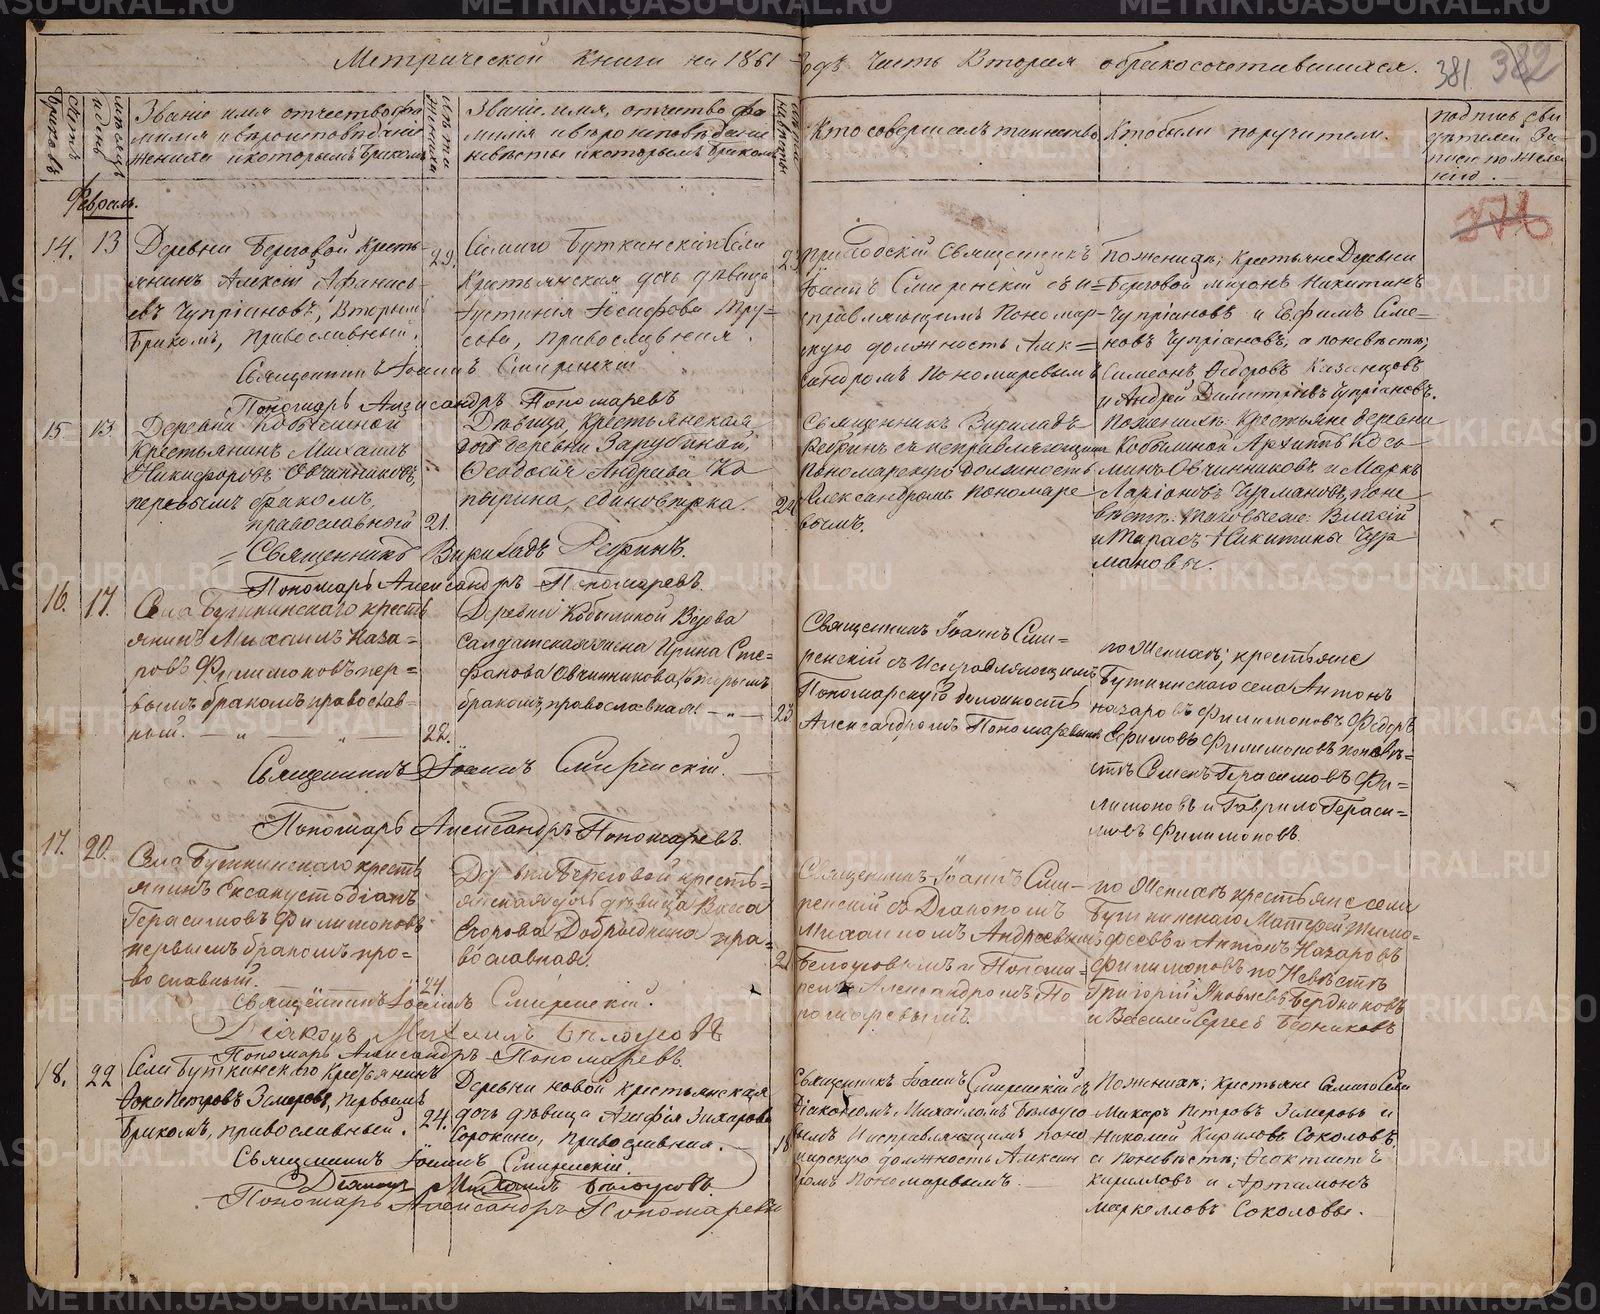 Метрической книги на 1861 годъ Часть Вторая о бракосочетавшихся.
381 382
Счетъ браковъ
Мѣсяцъ и день
Званіе имя отчество фа
милия и вѣроисповѣданіе
жениха и которымъ бракомъ
Лѣта жениха
Званіе, имя, отчество фа
милия и вѣроисповѣданіе
невѣсты и которымъ бракомъ
Лѣта невѣсты
Кто совершалъ таинство
Кто были поручители.
подпись сви
дѣтелей За
писи по жела
нію.
376
Февраль.
14. 13
Деревни Береговой кресть-
янинъ Алексѣй Афанась-
евъ Чупріановъ, Вторымъ
бракомъ, Православный.
29.
Самаго Буткинскаго Села
Крестьянская дочь дѣвица
Іустинія Іосифова Тру=
сова, Православная.
Приходскій Священникъ
Іоаннъ Смиренскій съ и=
справляющимъ Пономар-
скую должность Алек=
сандромъ Пономаревымъ
По женихѣ; крестьяне Деревни
Береговой Миронъ Никитинъ
Чупріановъ и Ефимъ Семе=
новъ Чупріановъ, а по невѣстѣ;
Симеонъ Ѳедоровъ Казанцовъ
и Андрей Димитріевъ Чупріановъ.
Священникъ Іоаннъ Смиренскій
Пономарь Александръ Пономаревъ
15 13.
Деревни Кобылиной
Крестьянинъ Михаилъ
Никифоровъ Овчинниковъ,
первымъ бракомъ,
православный
21.
Дѣвица, крестьянская
дочь деревни Зарубиной,
Ѳеодосія Андреева Ко
пырина, единовѣрка.
Священникъ
съ исправляющимъ
Пономарскую должность
Александромъ Пономаре
вымъ.
По женихѣ: Крестьяне деревни
Кобылиной Архипъ Кось
минъ Овчинниковъ и Маркъ
Ларіоновъ Чурмановъ, по не
вѣстѣ: таковые же: Власій
и Тарасъ Никитины Чур
мановы.
Священникъ
Пономарь Александръ Пономаревъ.
16. 17.
Села Буткинскаго кресть
янинъ Михаилъ Наза=
ровъ Филимоновъ пер=
вымъ бракомъ православ=
ный. — „ — „ —
22.
Деревни Кобылиной Вдова
Салдатская жена Ирина Сте=
фанова Овчинникова, вторымъ
бракомъ, православная. — „ —
23
Священникъ Іоаннъ Сми=
ренскій съ Исправляющимъ
Пономарскую должность
Александромъ Пономаревымъ
по Женихѣ; крестьяне
Буткинскаго села Антонъ
Назаровъ Филимоновъ Ѳедоръ
Ефимовъ Филимоновъ по невѣ=
стѣ Семенъ Герасимовъ Фи=
лимоновъ и Гаврило Гераси=
мовъ Филимоновъ.
Священникъ Іоаннъ Смиренскій.
Пономарь Александръ Пономаревъ.
17. 20.
Села Буткинскаго кресть
янинъ
Герасимовъ Филимоновъ
первымъ бракомъ пра=
вославный.
24.
Деревни Береговой кресть=
янская дочь дѣвица Васса
Егорова Добрыднина пра=
вославная.
Священникъ Іоаннъ Сми-
ренскій съ Діакономъ
Михаиломъ Андреевымъ
Белоусовымъ и Понома=
ремъ Александромъ По
номаревымъ.
по Женихѣ крестьяне села
Буткинскаго Матфей Тимо=
феевъ и Антонъ Назаровъ
Филимоновъ по Невѣстѣ
Григорій Яковлевъ Бердниковъ
и Василій Сергеев Бердниковъ
Священникъ Іоаннъ Смиренскій.
Діаконъ Михаилъ Белоусовъ
Пономарь Александръ Пономаревъ.
18. 22
Села Буткинскаго Крестьянинъ
Ѳока Петровъ Земеровъ, первымъ
бракомъ, православный.
24.
Деревни Новой крестьянская
дочь дѣвица Анфія Захарова
Сорокина, православная.
18
Священникъ Іоаннъ Смиренскій съ
Діакономъ Михаиломъ Белоусо
вымъ Исправляющимъ поно
марскую должность Алексан
дромъ Пономаревымъ.
По женихѣ; крестьяне Самаго Села
Макаръ Петровъ Земеровъ и
Николай Кириловъ Соколовъ,
а по невѣстѣ; Ѳеоктистъ
Кирилловъ и Артамонъ
Маркелловъ Соколовы.
Священникъ Іоаннъ Смиренскій.
Діаконъ Михаилъ Белоусовъ.
Пономарь Александръ Пономаревъ
METRIKI.GASO-URAL.RU